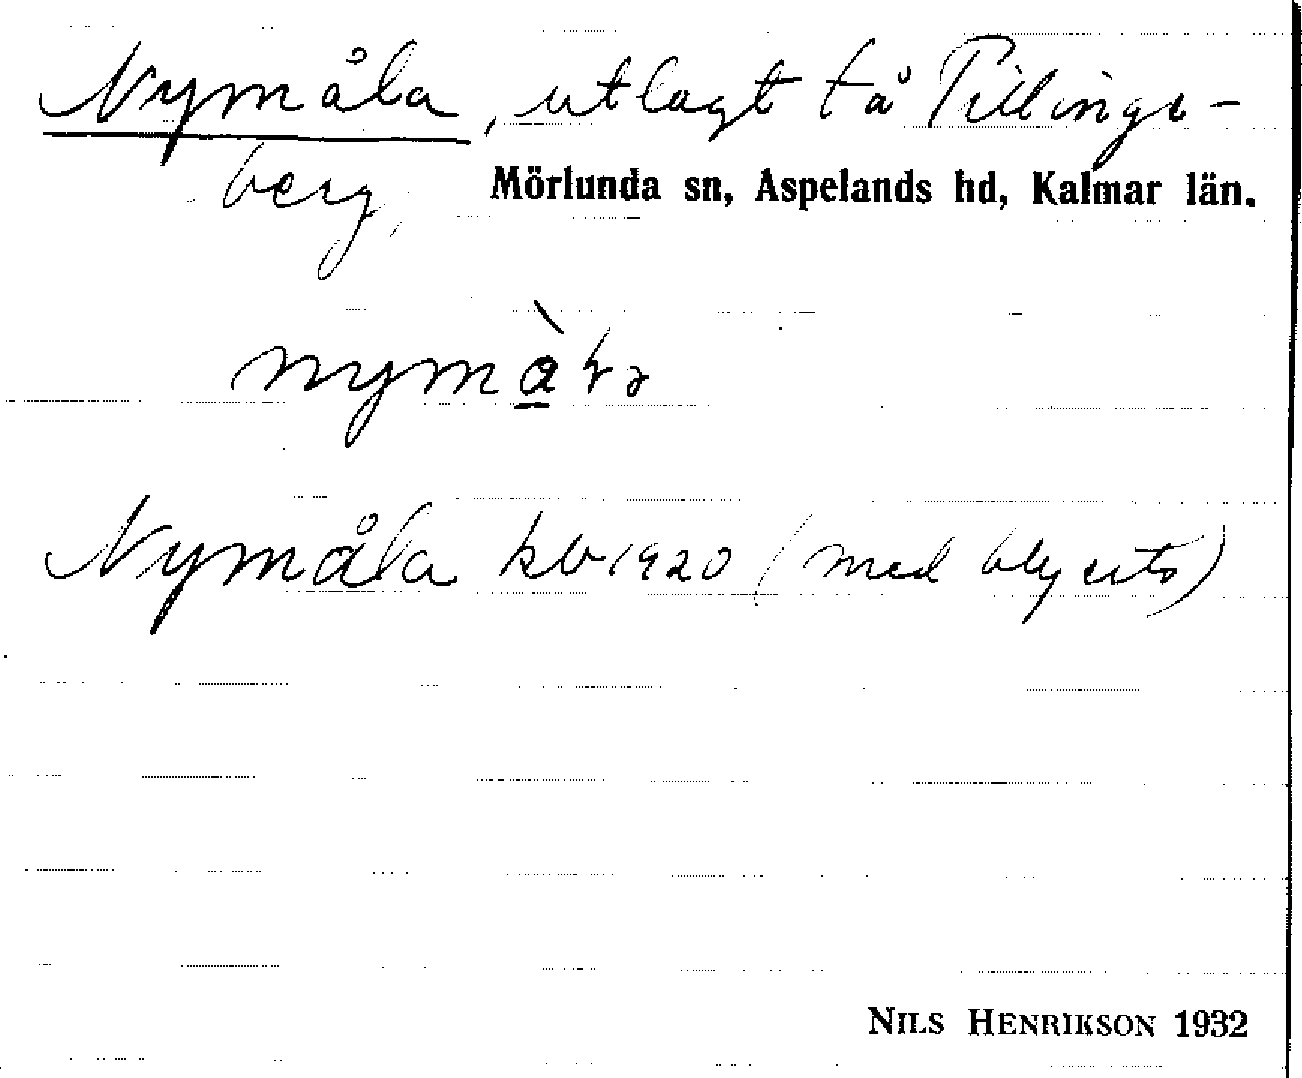 Nymåla, utlagt få Tillings-
berg,
Mörlunda sn, Aspelands hd, Kalmar län.
Nymåla kb 1920 (med blyerts)
NILS HENRIKSON 1932